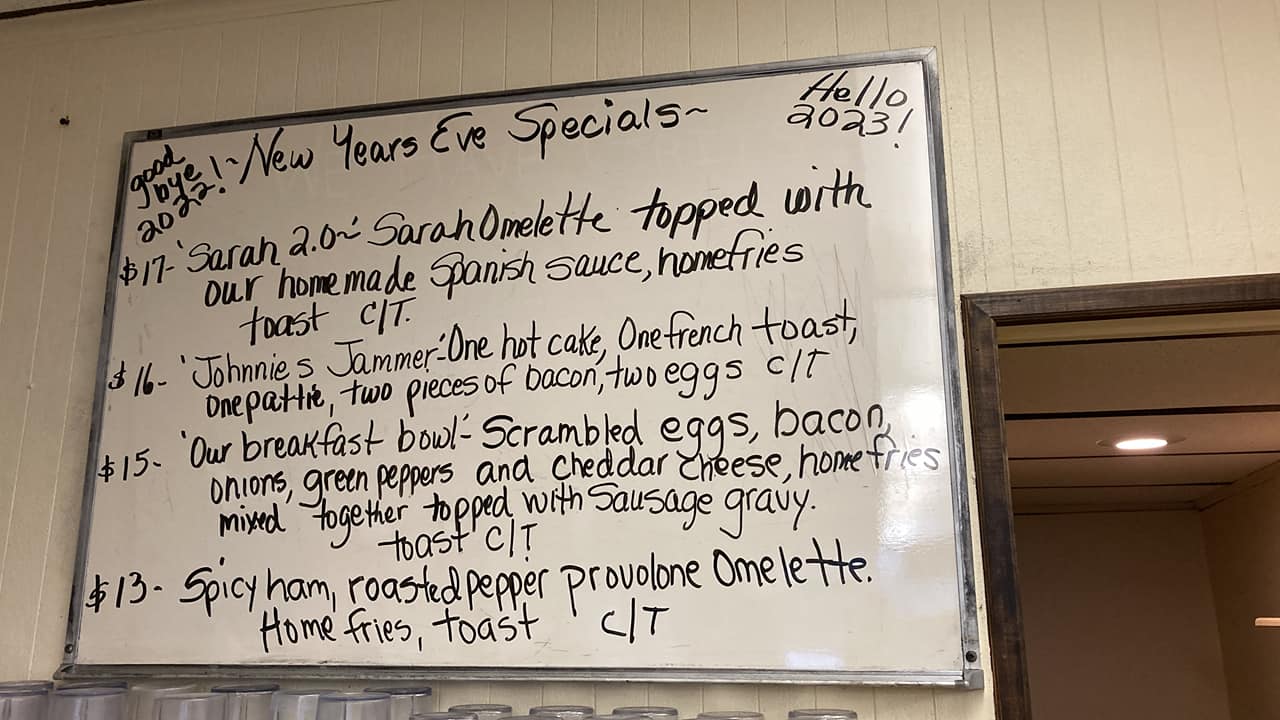 good bye 2022!
~New Years Eve Specials~
Hello 2023!
$17- 'Sarah 2.0~' Sarah Omelette topped with
our homemade Spanish sauce, homefries
toast C/T.
$16- 'Johnnies Jammer'- One hot cake, One french toast,
one pattie, two pieces of bacon, two eggs C/T
$15- 'Our breakfast bowl'- Scrambled eggs, bacon,
onions, green peppers and cheddar cheese, home fries
mixed together topped with Sausage gravy.
toast C/T
$13- Spicy ham, roasted pepper provolone Omelette.
Home fries, toast C/T